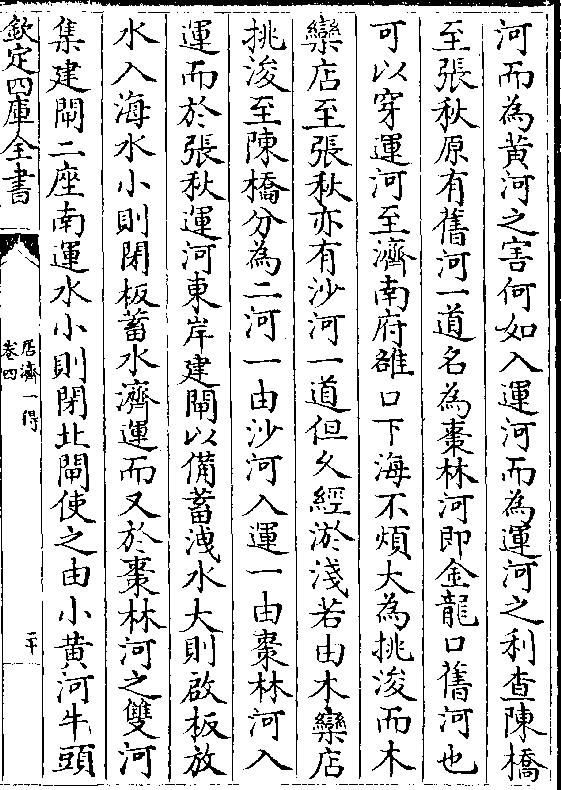 河而為黃河之害何如入運河而為運河之利查陳橋
至張秋原有舊河一道名為棗林河即金龍口舊河也
可以穿運河至濟南府雒口下海不煩大為挑浚而木
欒店至張秋亦有沙河一道但久經淤淺若由木欒店
挑浚至陳橋分為二河一由沙河入運一由棗林河入
運而於張秋運河東岸建閘以備蓄洩水大則啟板放
水入海水小則閉板蓄水濟運而又於棗林河之雙河
集建閘二座南運水小則閉北閘使之由小黃河牛頭
欽定四庫全書
居濟一得
卷四
二十